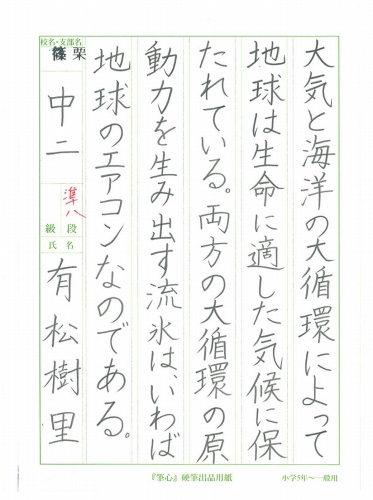 大気と海洋の大循環によって
地球は生命に適した気候に保
たれている。両方の大循環の原
動力を生み出す流氷は、いわば
地球のエアコンなのである。
校名・支部名
篠栗
中二
準八
級 段
氏名
有松樹里
『筆心』硬筆出品用紙
小学5年～一般用